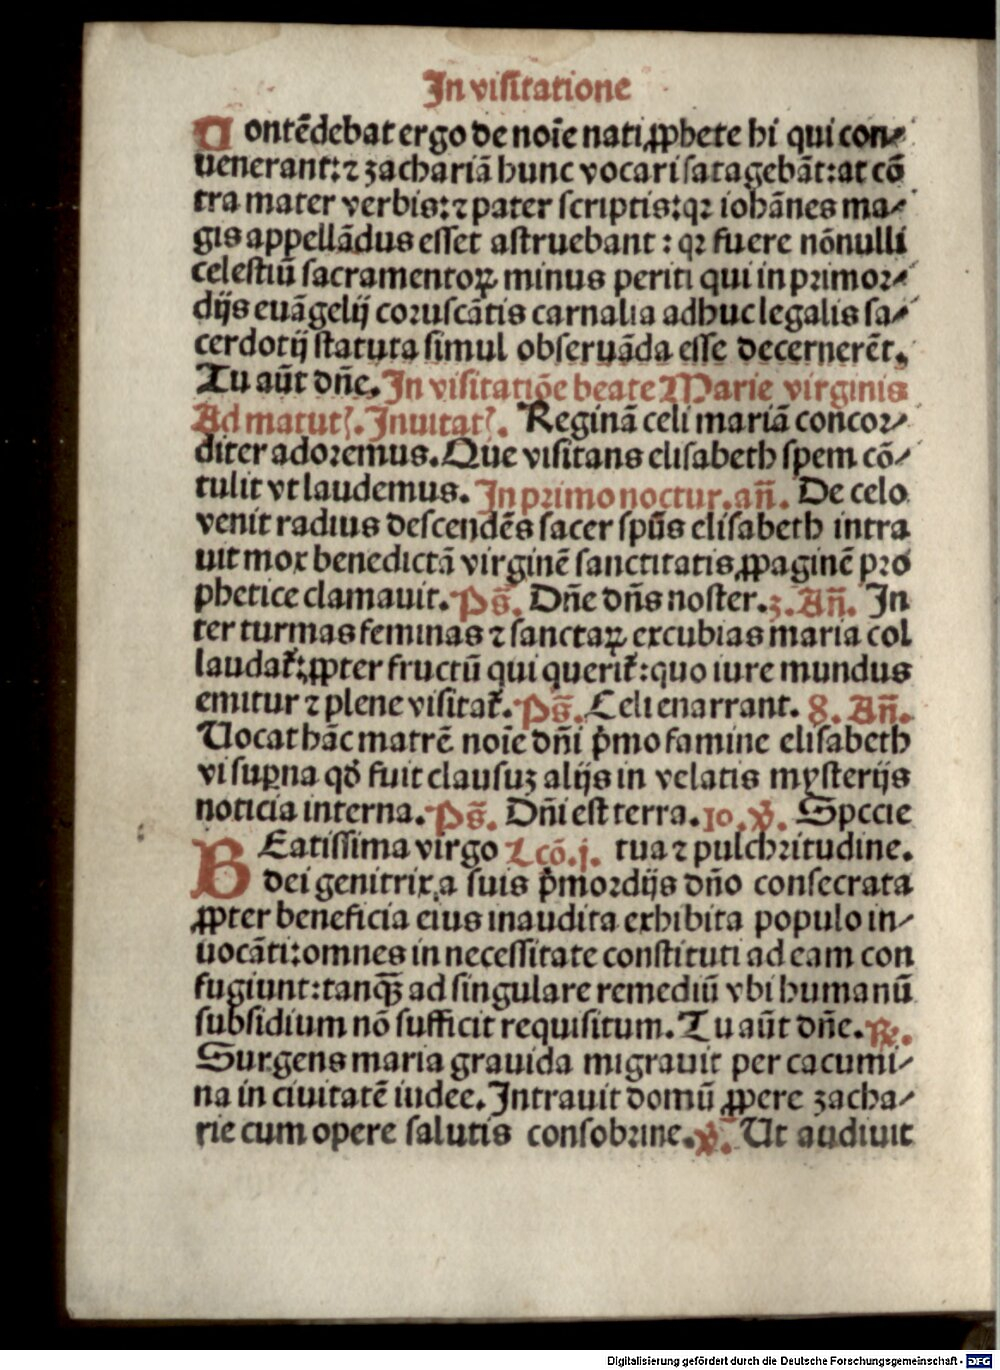 In visitatione
Contēdebat ergo de noīe nati ꝓphete hi qui con⸗
uenerant: ⁊ zachariā hunc vocari satagebāt: at cō
tra mater verbis: ⁊ pater scriptis: qꝛ iohānes ma⸗
gis appellādus esset astruebant: qꝛ fuere nōnulli
celestiū sacramentoꝝ minus periti qui in primor⸗
dijs euāgelij coruscātis carnalia adhuc legalis sa⸗
cerdotij statuta simul obseruāda esse decernerēt.
Tu aūt dn̄e. In visitatiōe beate Marie virginis
Ad matut̉. Inuitat̉. Reginā celi mariā concor⸗
diter adoremus. Que visitans elisabeth spem cō⸗
tulit vt laudemus. In primo noctur. an̄. De celo
venit radius descendēs sacer spūs elisabeth intra
uit mox benedictā virginē sanctitatis ꝓpaginē pro
phetice clamauit. Ps̄. Dn̄e dn̄s noster. 3. An̄. In
ter turmas feminas ⁊ sanctaꝝ excubias maria col
laudat̉: ꝓpter fructū qui querit̉: quo iure mundus
emitur ⁊ plene visitat̉. Ps̄. Celi enarrant. 8. An̄.
Uocat hāc matrē noīe dn̄i p̄mo famine elisabeth
vi suꝑna qd̄ fuit clausuꝫ alijs in velatis mysterijs
noticia interna. Ps̄. Dn̄i est terra. 10. ꝟ. Specie
BEatissima virgo Lcō. j. tua ⁊ pulchritudine.
dei genitrix, a suis p̄mordijs dn̄o consecrata
ꝓpter beneficia eius inaudita exhibita populo in⸗
uocāti: omnes in necessitate constituti ad eam con
fugiunt: tanqꝫ̄ ad singulare remediū vbi humanū
subsidium nō sufficit requisitum. Tu aūt dn̄e. ℟.
Surgens maria grauida migrauit per cacumi⸗
na in ciuitatē iudee. Intrauit domū ꝓpere zacha⸗
rie cum opere salutis consobrine. ꝟ. Ut audiuit
Digitalisierung gefördert durch die Deutsche Forschungsgemeinschaft - DFG